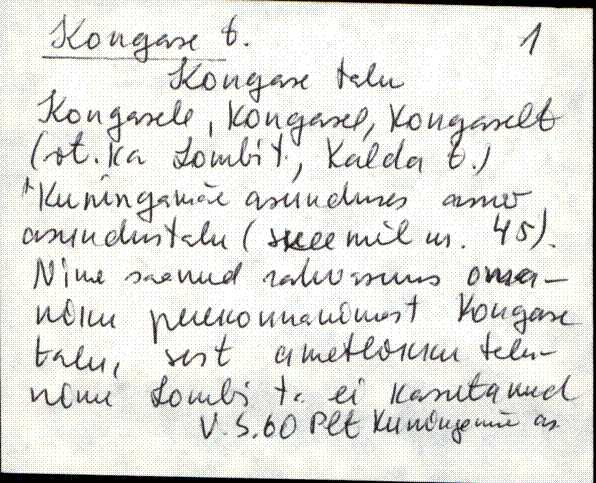 Kongase t. 1
Kongase talu
Kongasele, Kongasel, Kongaselt
(vt. ka Lombi t., Kalda t.)
Kuningamäe asunduses asuv
asundustalu (skeemil nr. 45).
Nime saanud rahvasuus oma-
niku perekonnanimest Kongase
talu, sest ametlikku talu-
nime Lombi t. ei kasutanud
V.S. 60 Plt Kuningamäe as